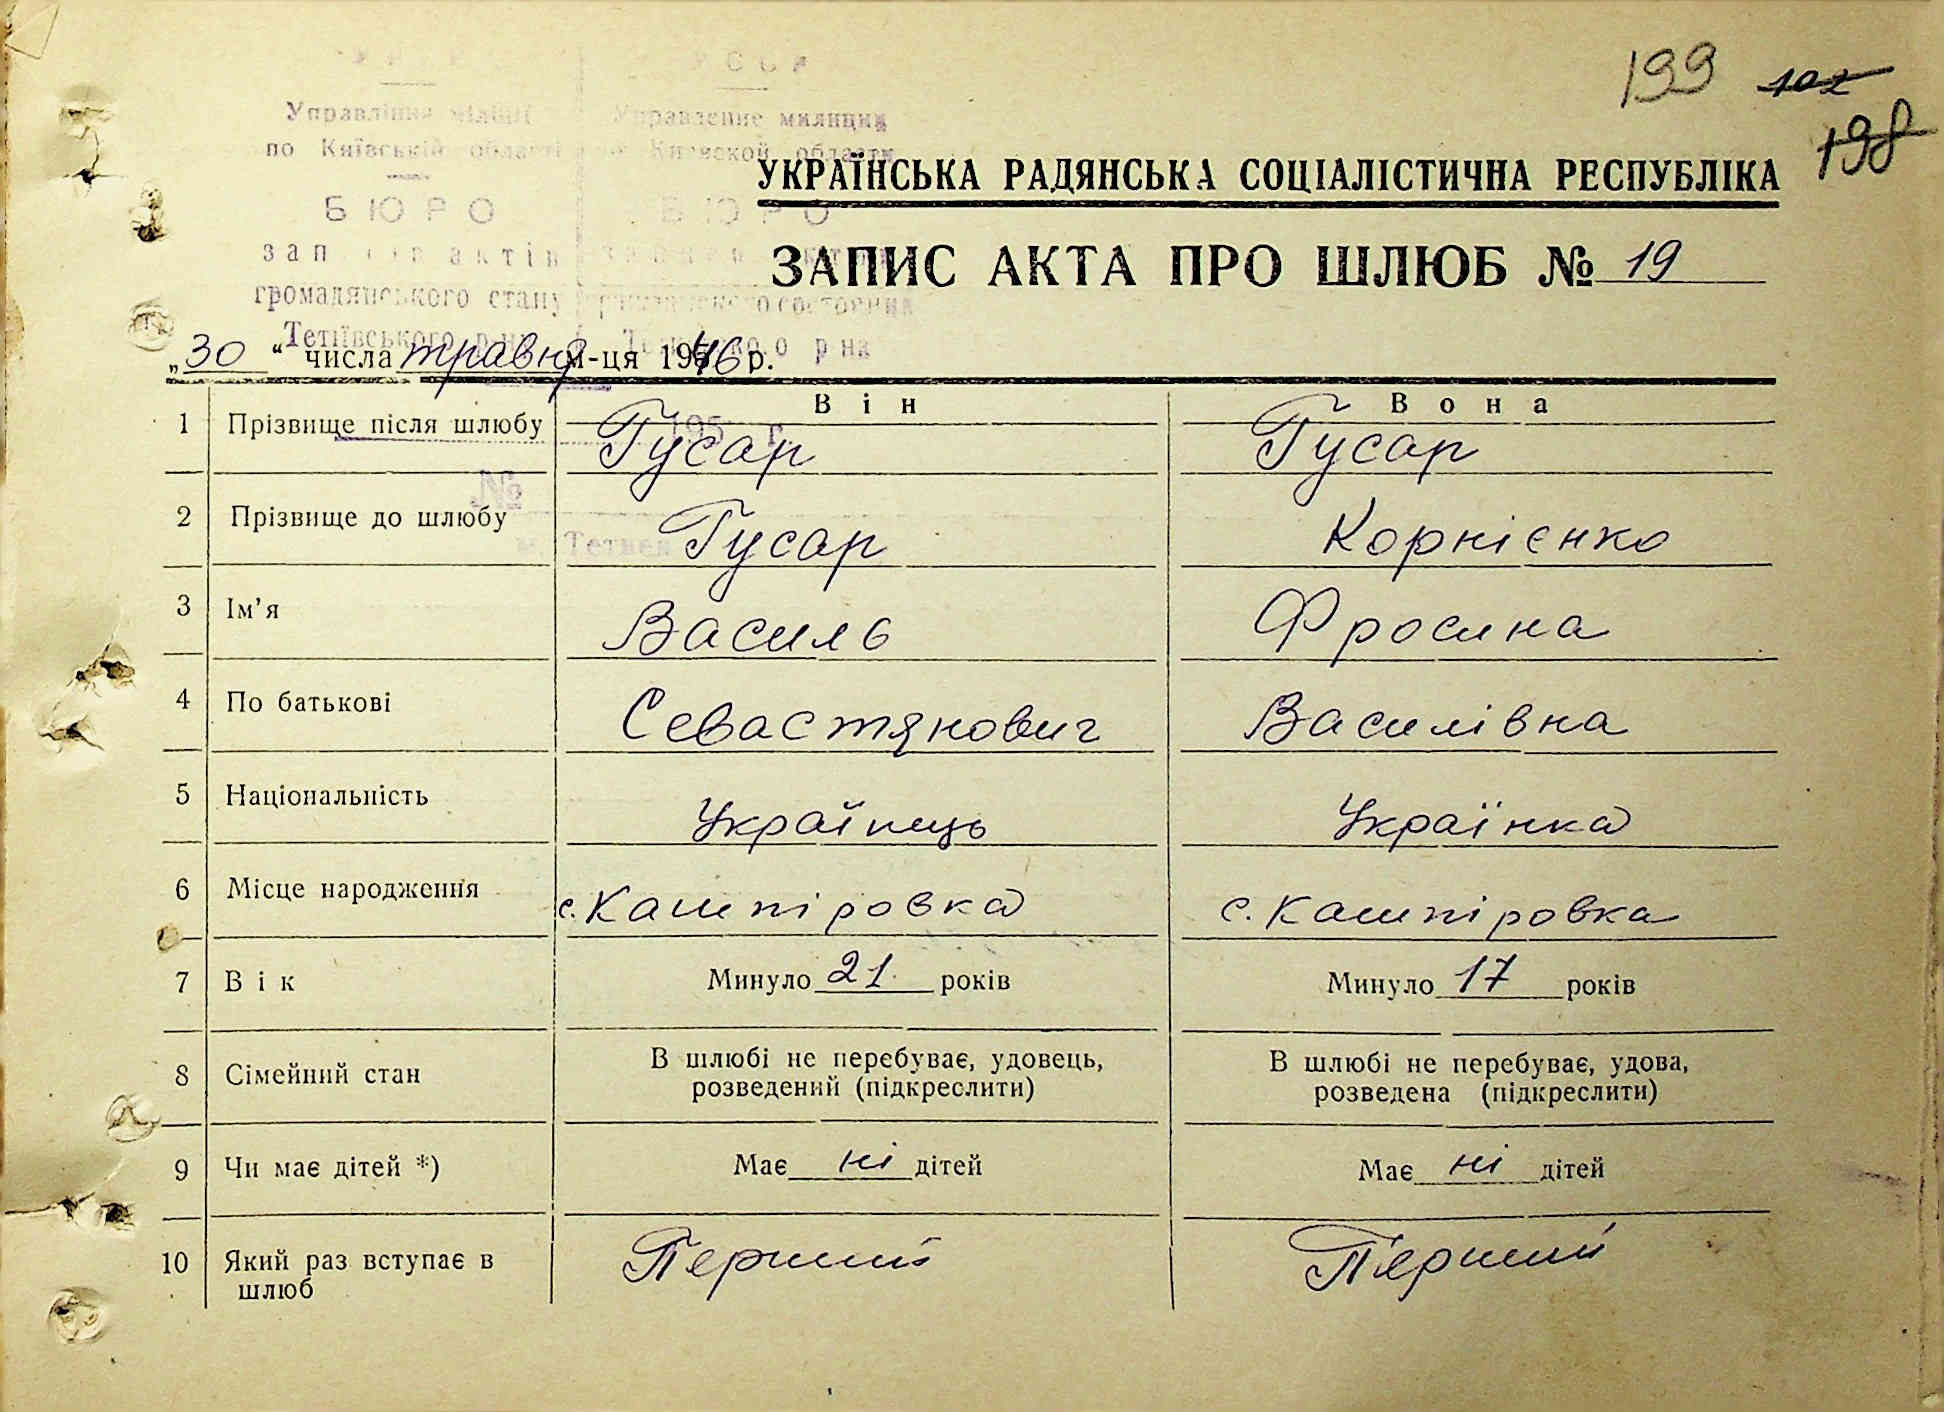 199 102
198
Управління міліції Управление милиции
по Київській області по Киевской области
БЮРО БЮРО
записів актів
громадянського стану гражданского состояния
Тетіївського р-на
УКРАЇНСЬКА РАДЯНСЬКА СОЦІАЛІСТИЧНА РЕСПУБЛІКА
ЗАПИС АКТА ПРО ШЛЮБ № 19
„30“ числа травня м-ця 1946 р.
Він Вона
1 Прізвище після шлюбу Гусар Гусар
195 г.
№
2 Прізвище до шлюбу Гусар Корнієнко
м. Тетиев
3 Ім’я Василь Фросина
4 По батькові Севастянович Василівна
5 Національність Українець Українка
6 Місце народження с. Кашпіровка с. Кашпіровка
7 Вік Минуло 21 років Минуло 17 років
8 Сімейний стан В шлюбі не перебуває, удовець, розведений (підкреслити) В шлюбі не перебуває, удова, розведена (підкреслити)
9 Чи має дітей *) Має ні дітей Має ні дітей
10 Який раз вступає в шлюб Перший Перший